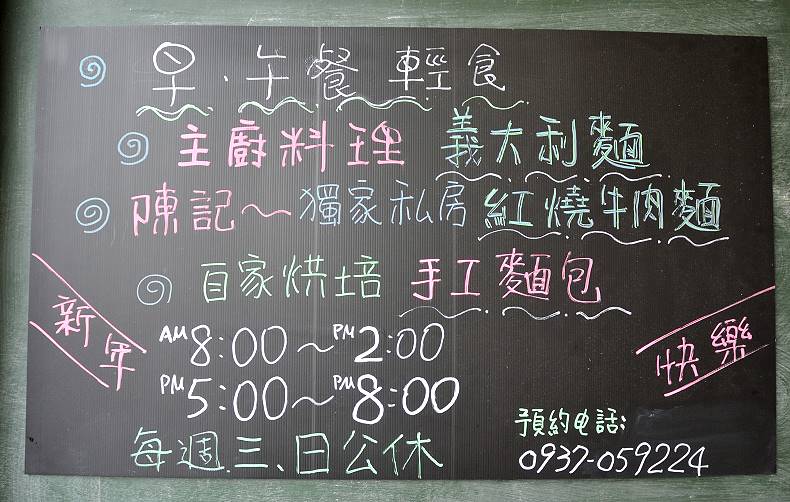 早、午餐 輕食
主廚料理 義大利麵
陳記～獨家私房 紅燒牛肉麵
自家烘培 手工麵包
新年
快樂
AM 8:00～PM 2:00
PM 5:00～PM 8:00
每週三、日公休
預約电話:
0937-059224